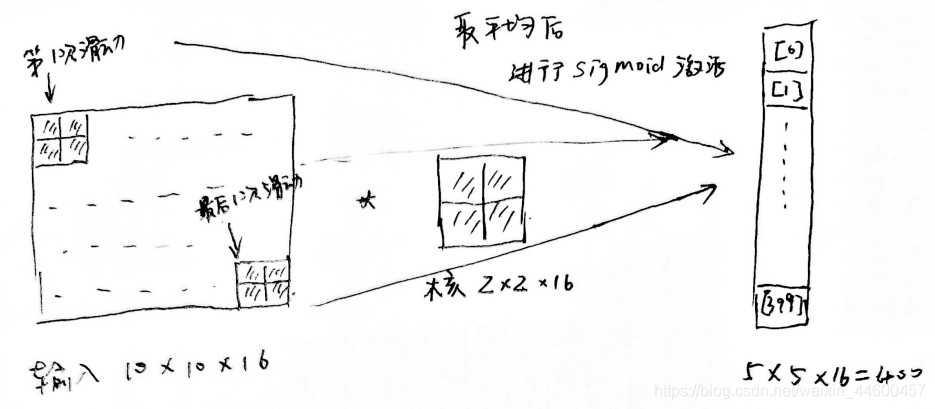 取平均后
进行sigmoid激活
第1次滑动
最后1次滑动
*
核 2×2×16
输入 10×10×16
[0]
[1]
[399]
5×5×16=400
https://blog.csdn.net/weixin_44600457